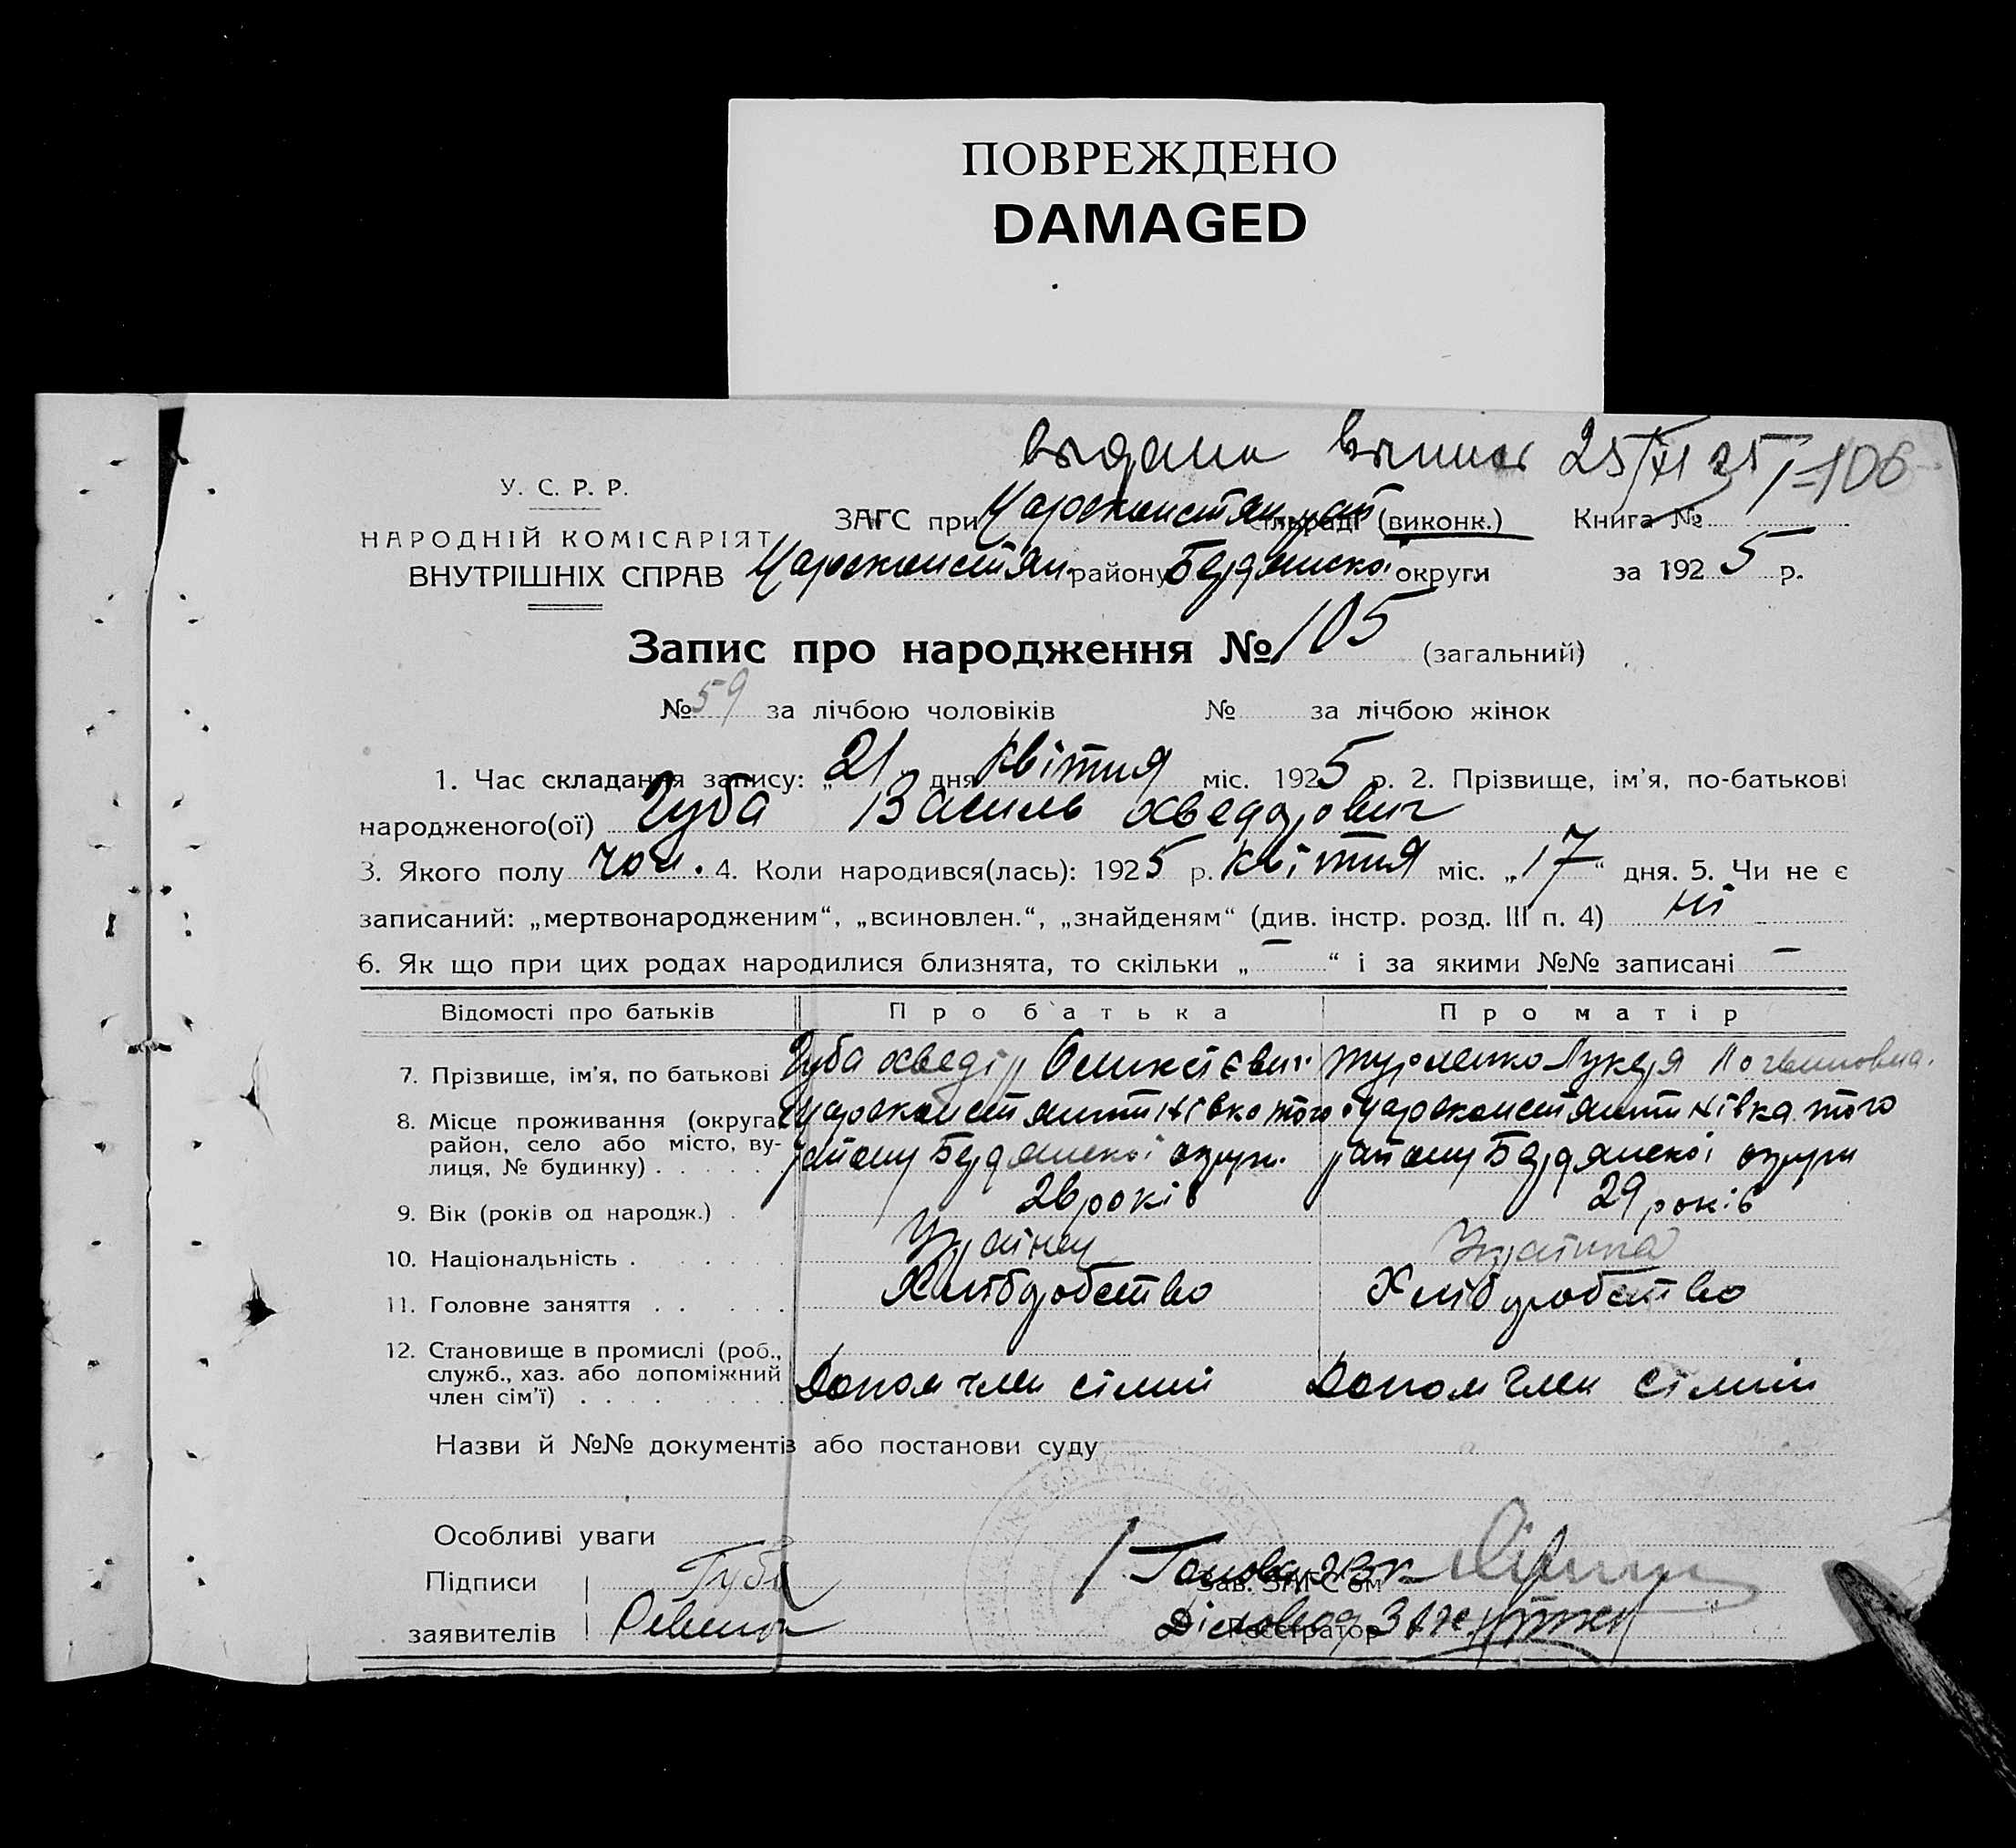 ПОВРЕЖДЕНО
DAMAGED
выдана 25/VI 25 I-106
У. С. Р. Р.
НАРОДНІЙ КОМІСАРІЯТ
ВНУТРІШНІХ СПРАВ
ЗАГС при Царокостян. сільраді (виконк.) Книга №
Царокостян. району Бердянскої округи за 1925 р.
Запис про народження № 105 (загальний)
№ 59 за лічбою чоловіків № за лічбою жінок
1. Час складання запису: „21“ дня квітня міс. 1925 р. 2. Прізвище, ім’я, по-батькові
народженого(ої) Губа Василь Хведорович
3. Якого полу чол. 4. Коли народився(лась): 1925 р. квітня міс. „17“ дня. 5. Чи не є
записаний: „мертвонародженим“, „всиновлен.“, „знайденям“ (див. інстр. розд. III п. 4) ні
6. Як що при цих родах народилися близнята, то скільки „—“ і за якими №№ записані —
Відомості про батьків Про батька Про матір
7. Прізвище, ім’я, по батькові Губа Хведір Лукеря
8. Місце проживання (округа, район, село або місто, вулиця, № будинку) . . . . .
Цароконстянтинівка того району Бердянскої округи
Цароконстянтинівка того району Бердянскої округи
9. Вік (років од народж.) . 26 років 29 років
10. Національність . . . . . Українец Українка
11. Головне заняття . . . . . Хліборобство Хліборобство
12. Становище в промислі (роб., служб., хаз. або допоміжний член сім’ї) . . . .
Допом член сімии Допом член сімии
Назви й №№ документів або постанови суду
Особливі уваги
Підписи Губа Голова РВК
Зав. ЗАГС’ом
заявителів Діловод ЗАГС
Реєстратор